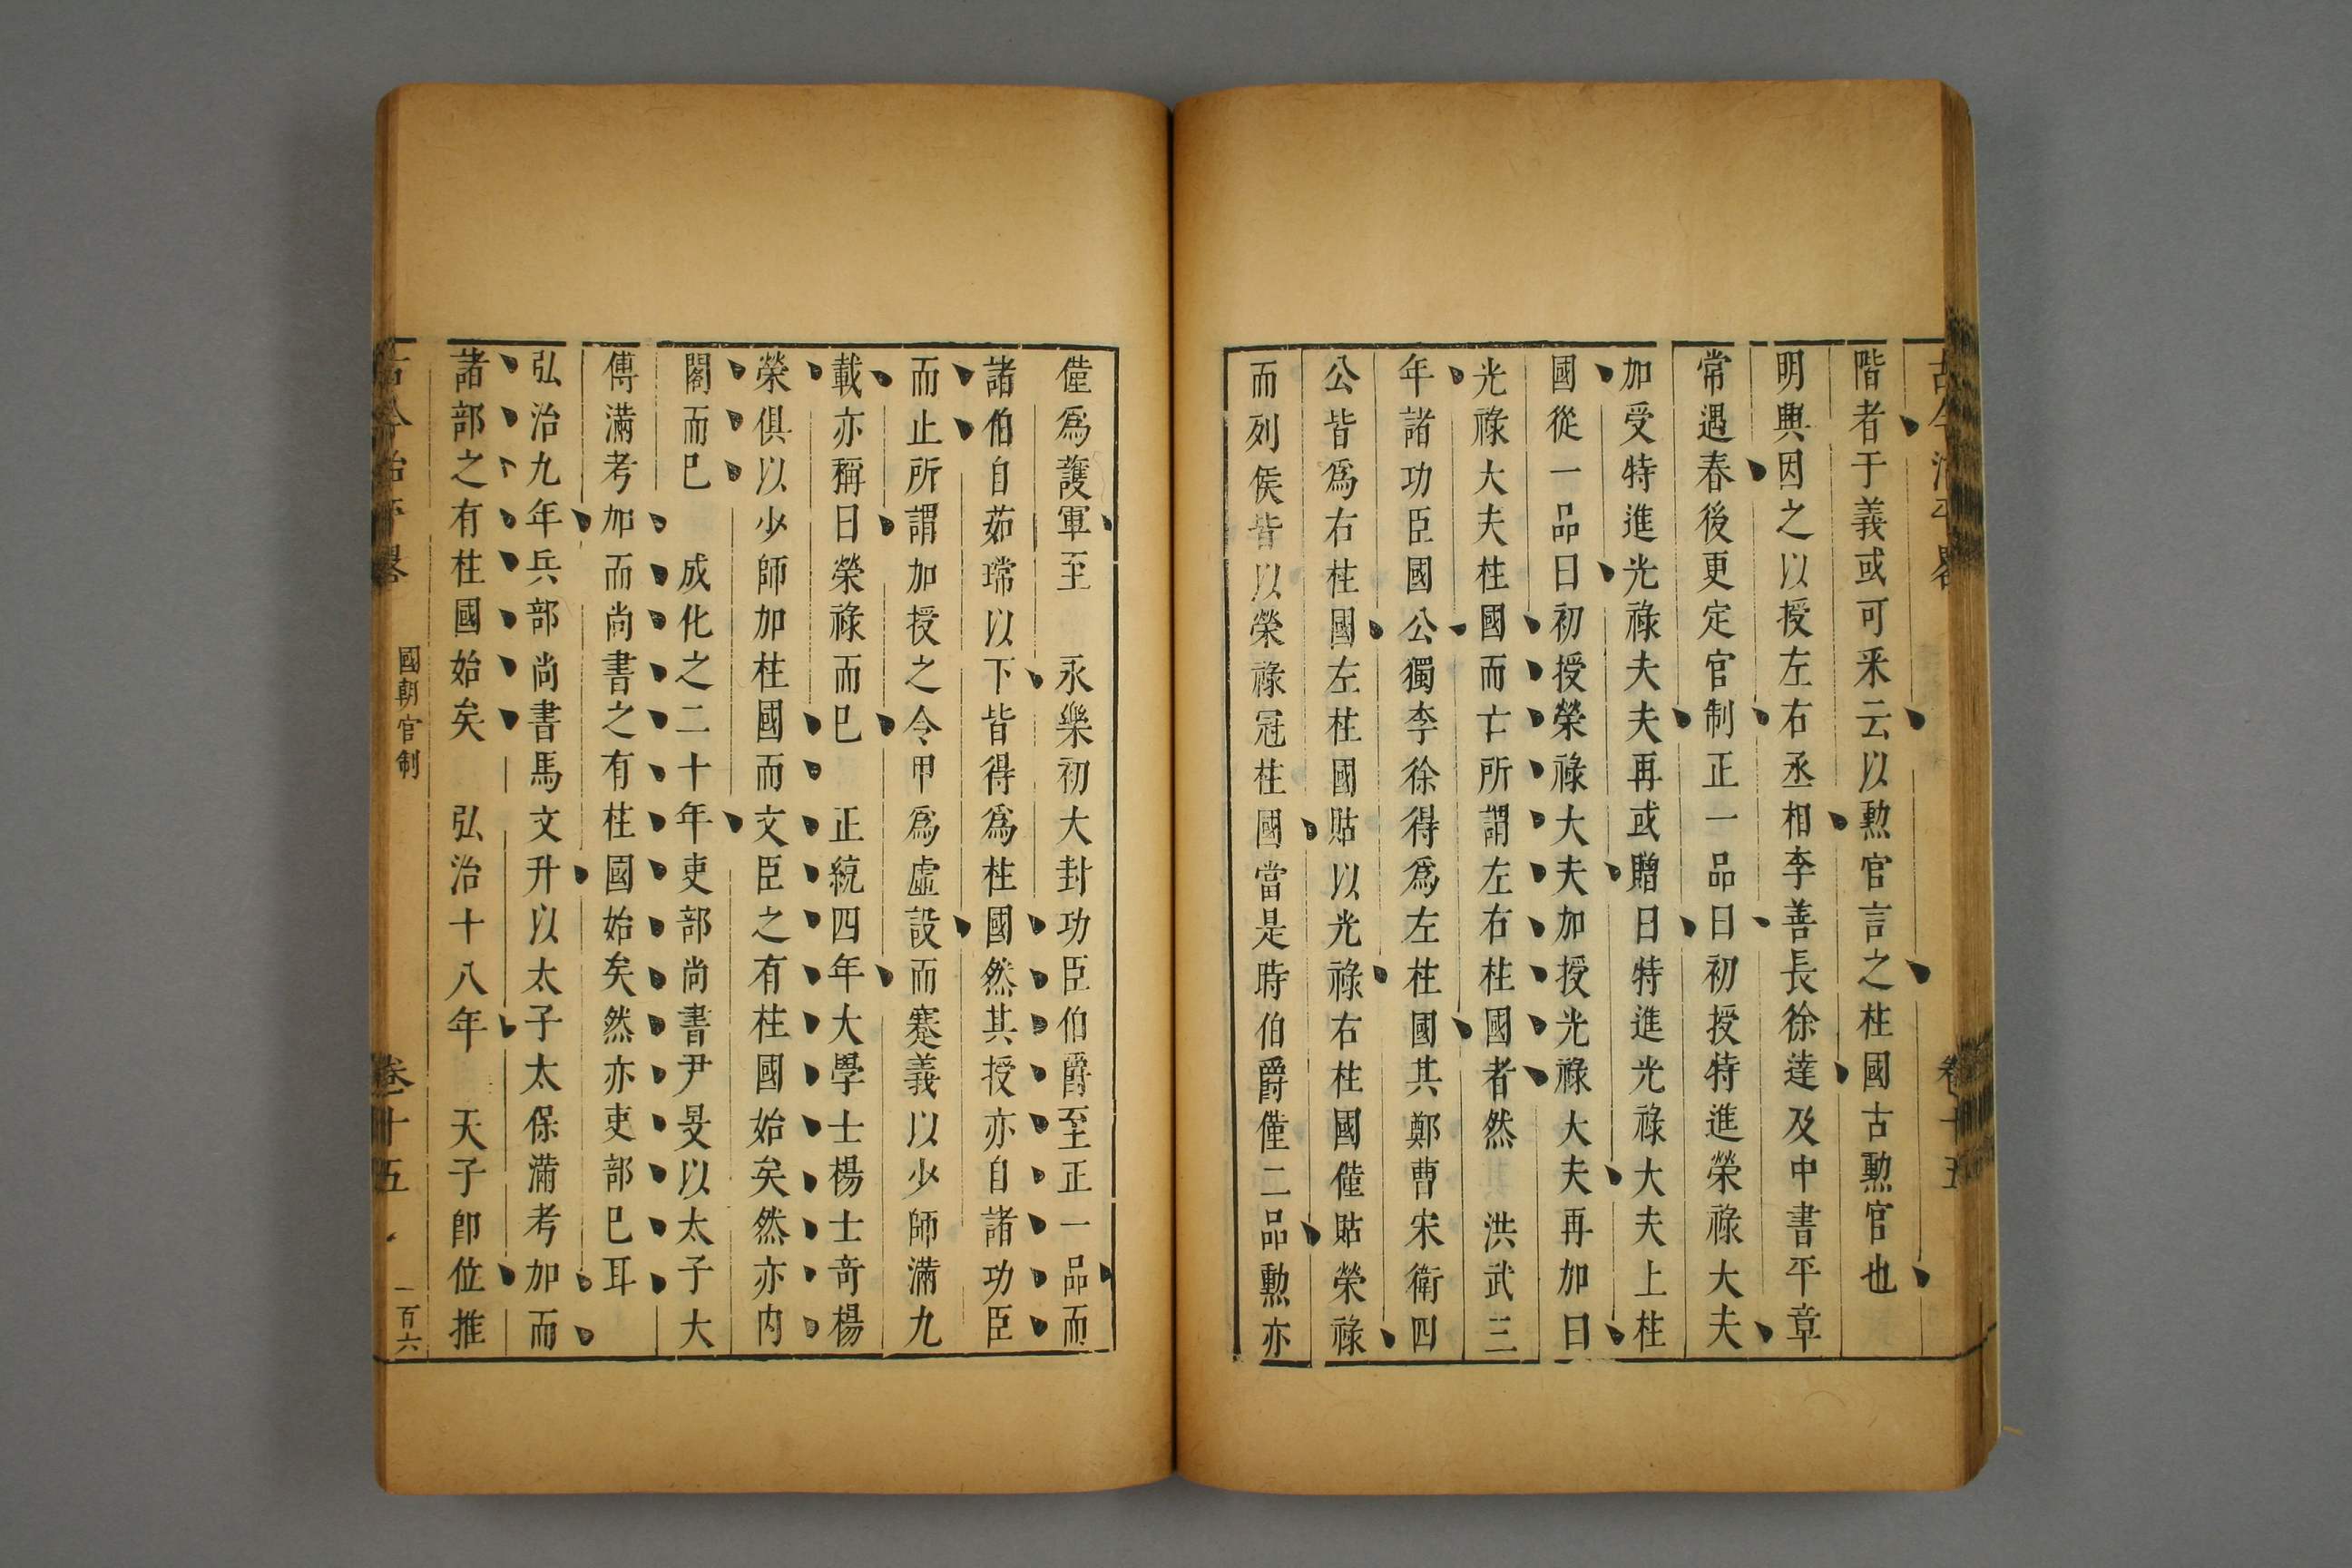 古今治平畧
卷十五
階者于義或可采云以勲官言之柱國古勲官也
明興因之以授左右丞相李善長徐達及中書平章
常遇春後更定官制正一品曰初授特進榮祿大夫
加受特進光祿夫夫再或贈曰特進光祿大夫上柱
國從一品曰初授榮祿大夫加授光祿大夫再加曰
光祿大夫柱國而亡所謂左右柱國者然 洪武三
年諸功臣國公獨李徐得爲左柱國其鄭曹宋衛四
公皆爲右柱國左柱國貼以光祿右柱國僅貼榮祿
而列侯皆以榮祿冠柱國當是時伯爵僅二品勲亦
僅爲護軍至 永樂初大封功臣伯爵至正一品而
諸伯自茹瑺以下皆得爲柱國然其授亦自諸功臣
而止所謂加授之令甲爲虛設而蹇義以少師滿九
載亦稱曰榮祿而已 正統四年大學士楊士竒楊
榮俱以少師加柱國而文臣之有柱國始矣然亦内
閣而已 成化之二十年吏部尚書尹旻以太子大
傅滿考加而尚書之有柱國始矣然亦吏部已耳
弘治九年兵部尚書馬文升以太子太保滿考加而
諸部之有柱國始矣 弘治十八年 天子卽位推
古今治平畧
國朝官制
卷十五
一百六